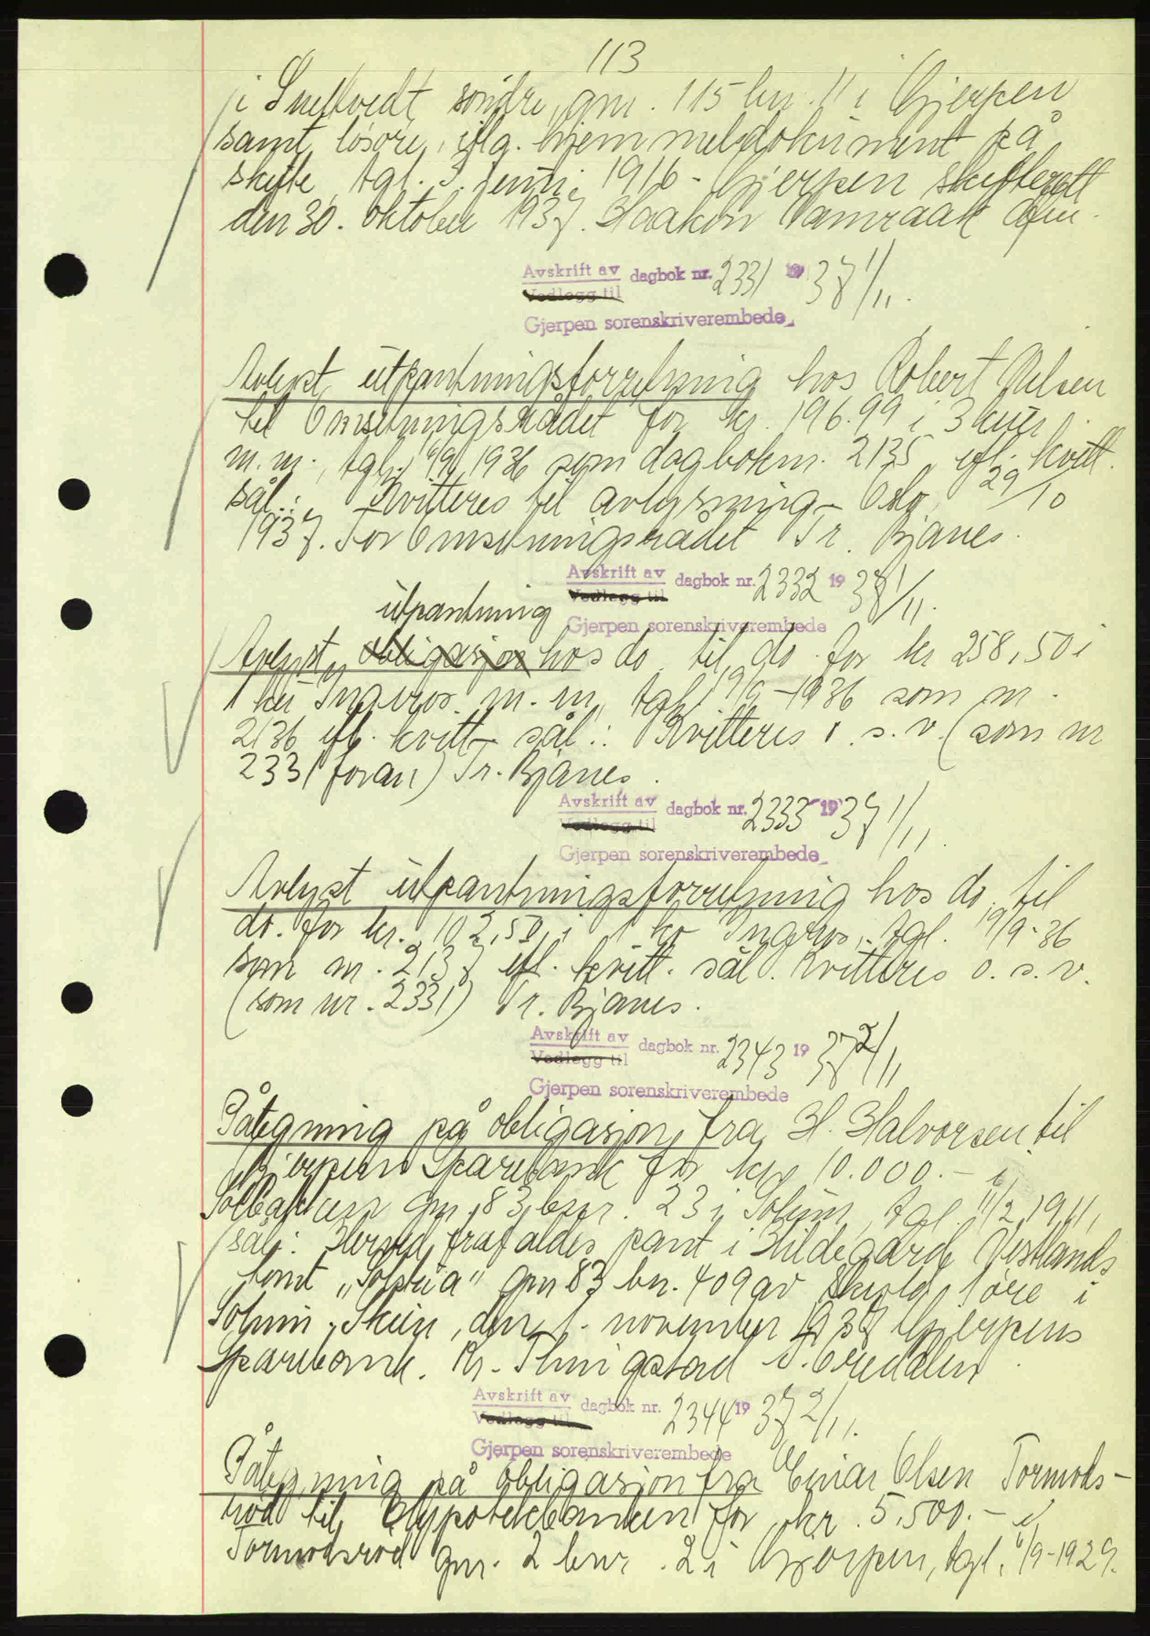 113
i Snelkvedt søndre, gnr. 115 bnr. 11 i Gjerpen
samt løsøre, iflg. hjemmelsdokument på
skifte, tgl. 3. juni 1916 - Gjerpen skifterett
den 30. oktober 1937. Haakon
Avskrift av dagbok nr. 2331 1937 1/11.
Vedlegg til
Gjerpen sorenskriverembede
Avlyst utpantningsforretning hos Robert Nilsen
til Omsetningsrådet for kr. 196.99 i 3 kuer
m. m., tgl. 19/9 1936 som dagboknr. 2135 efl. kvitt.
sål.: Kvitteres til avlysning - Oslo, 29/10
1937. For Omsetningsrådet Tr. Bjanes.
Avskrift av dagbok nr. 2332 1937 1/11.
Vedlegg til
utpantning Gjerpen sorenskriverembede
Avlyst obligasjon hos do. til do. for kr. 258,50 i
1 ku Ingeros m. m., tgl. 19/9-1936 som nr.
2136 efl. kvitt. sål.: Kvitteres o. s. v. (som nr
2331 foran) Tr. Bjanes.
Avskrift av dagbok nr. 2333 1937 1/11
Vedlegg til
Gjerpen sorenskriverembede
Avlyst utpantningsforretning hos do. til
do. for kr. 102,50 i 1 ku Ingeros, tgl. 19/9-36
som nr. 2137 efl. kvitt. sål. Kvitteres o. s. v.
(som nr. 2331) Tr. Bjanes.
Avskrift av dagbok nr. 2343 1937 2/11
Vedlegg til
Gjerpen sorenskriverembede
Påtegning på obligasjon fra H. Halvorsen til
Gjerpens Sparebank for kr. 10.000.- i
Solbakken gnr. 83, bnr. 23 i Solum, tgl. 11/2 1911,
sål.: Herved frafaldes pant i Hildegard Vestlands
tomt „Solstua" gnr 83 bnr. 409 av skyld 1 øre i
Solum. Skien, den 1. november 1937 Gjerpens
Sparebank.
Avskrift av dagbok nr. 2344 1937 2/11.
Vedlegg til
Gjerpen sorenskriverembede
Påtegning på obligasjon fra Einar Olsen Tormods-
rød til Hypotekbanken for kr. 5.500.- i
Tormodsrød gnr. 2 bnr. 2 i Gjerpen, tgl. 6/9-1929.